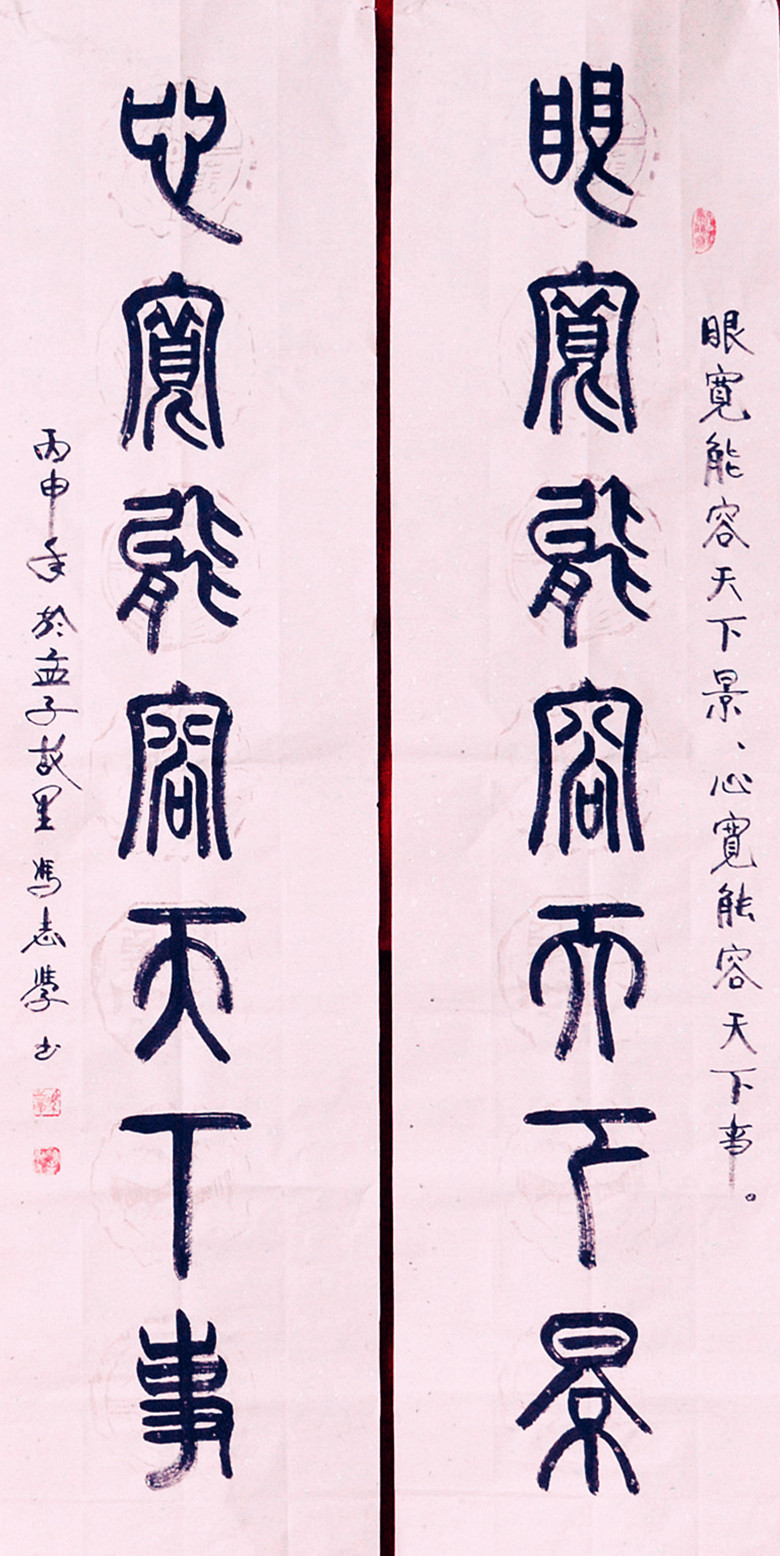 眼寬能容天下景、心寬能容天下事。
眼寬能容天下景
心寬能容天下事
丙申年於孟子故里馮志學书